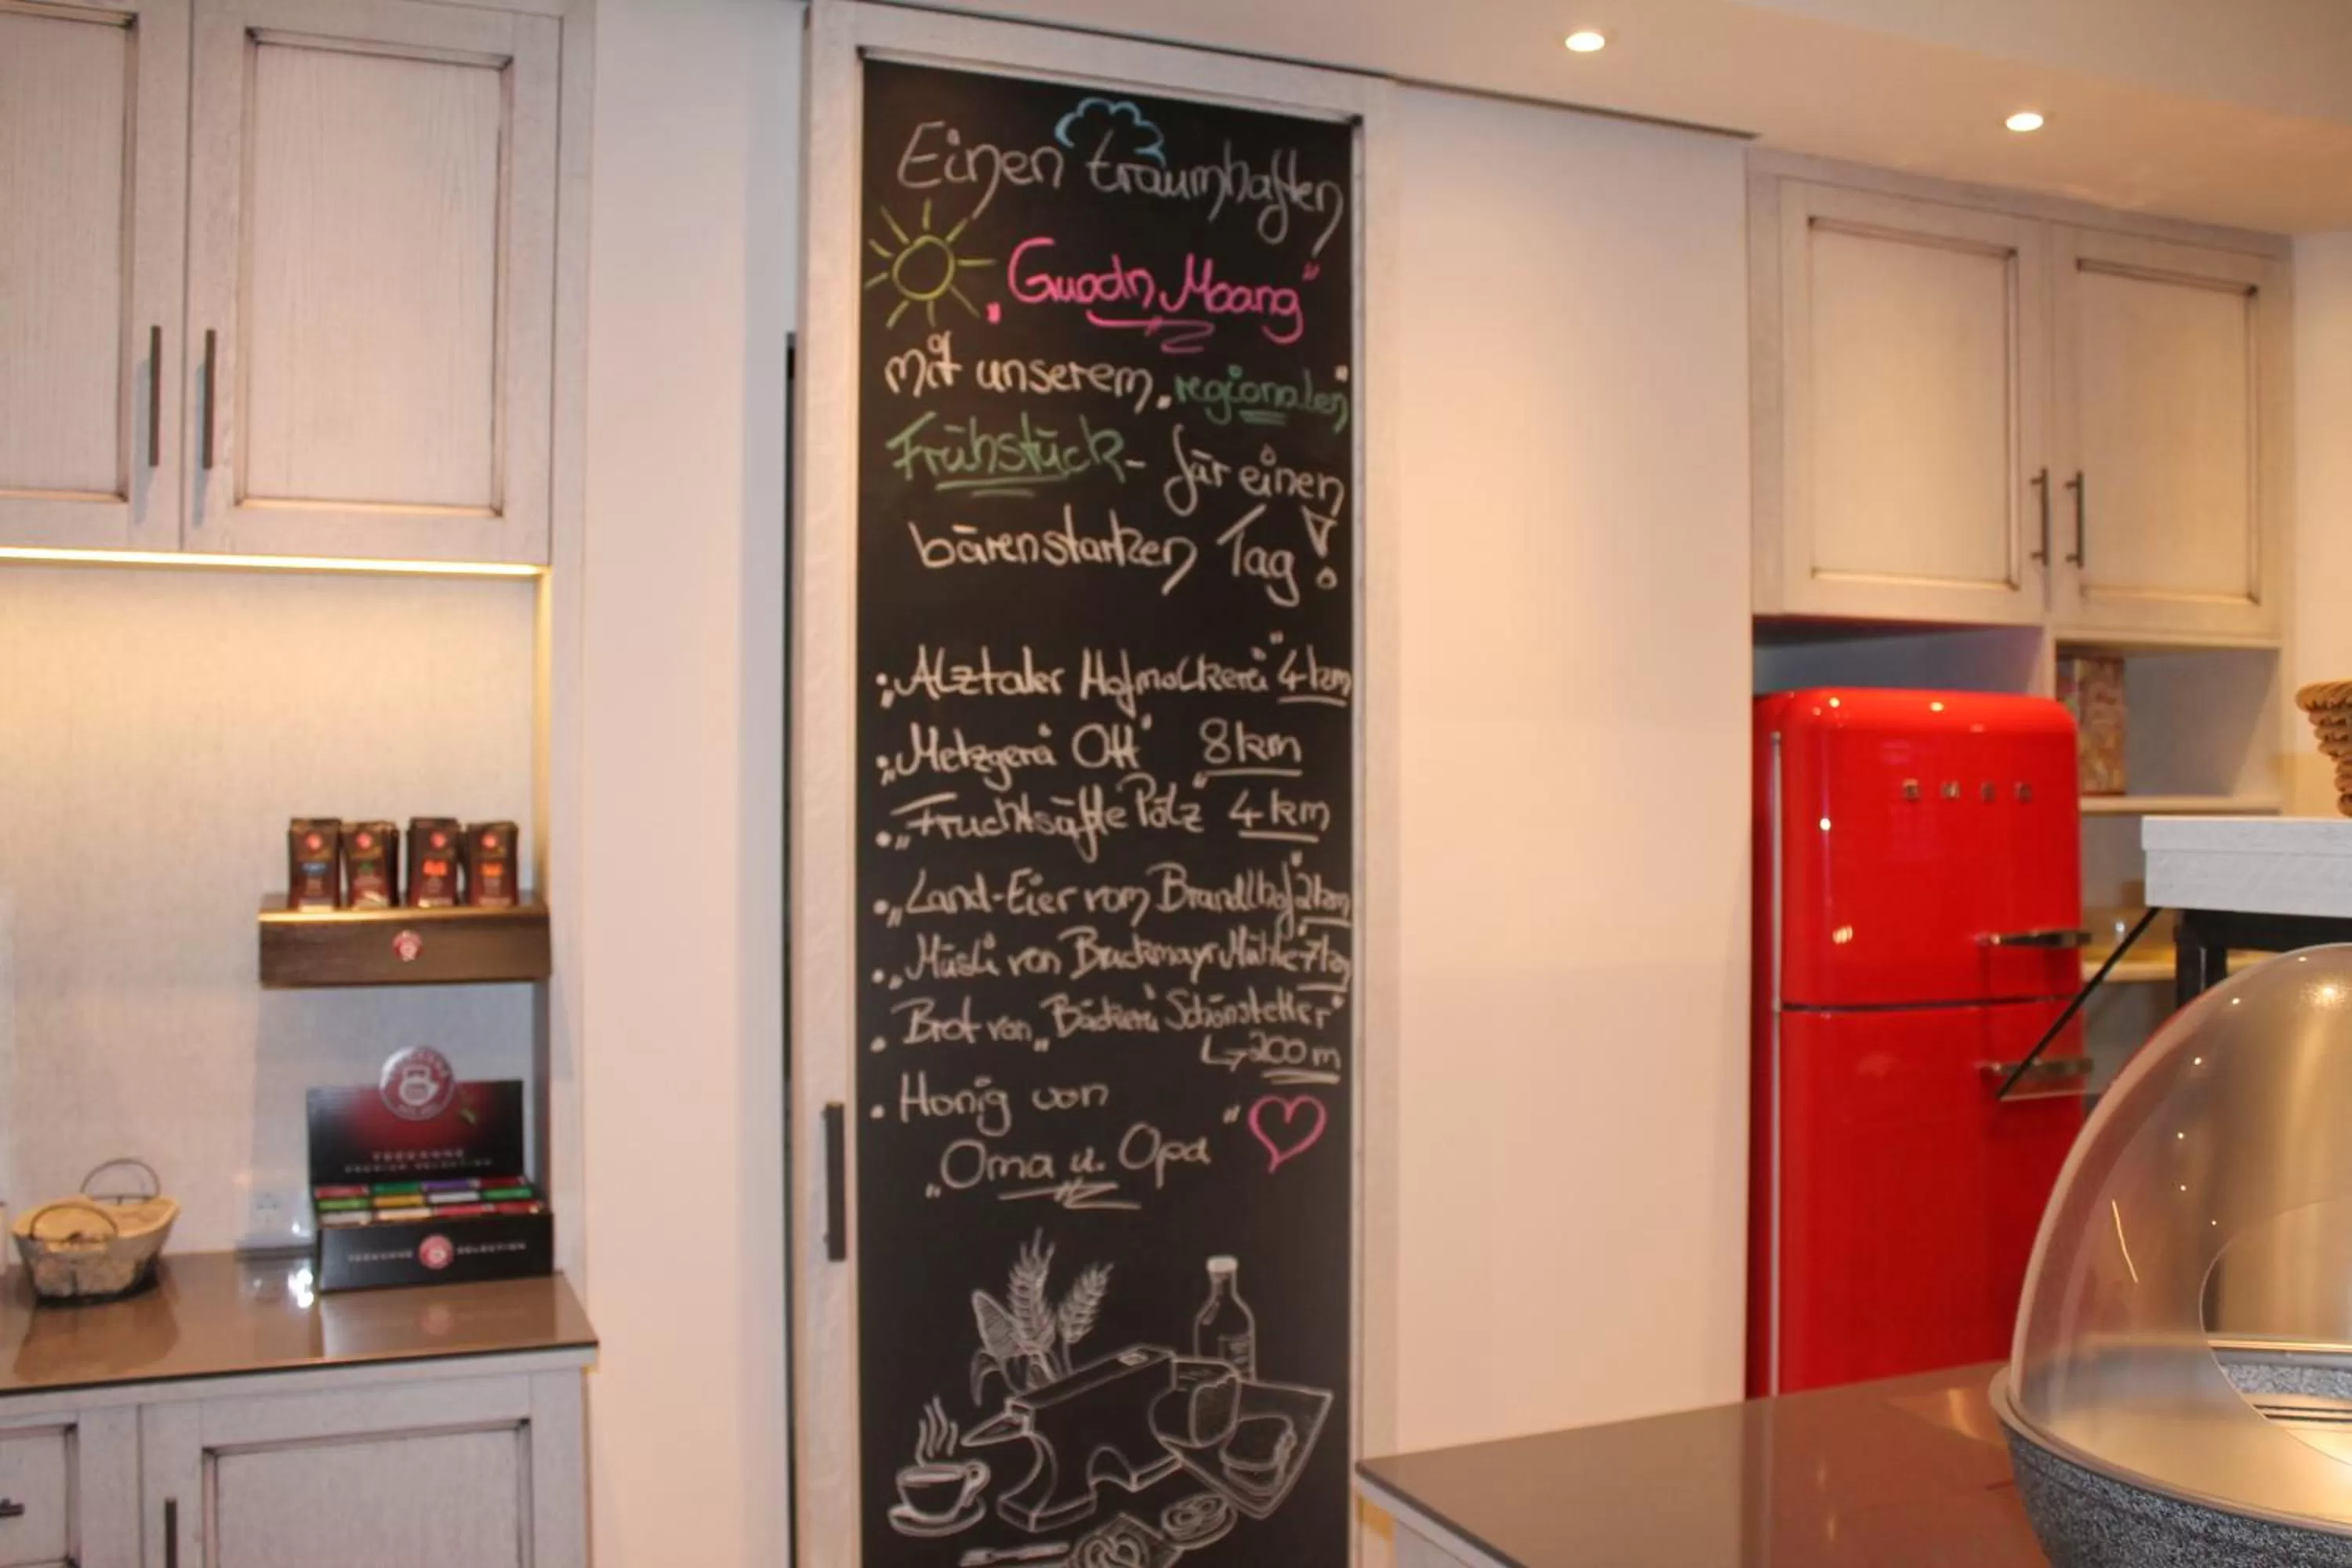 Einen traumhaften
„Guadn Moang"
mit unserem „regionalen"
Frühstück - für einen
bärenstarken Tag!
• „Alztaler Hofmolkerei" 4 km
• „Metzgerei Ott" 8 km
• „Fruchtsäfte Pölz" 4 km
• „Land-Eier vom Brandlhof" 2 km
• „Müsli von Bruckmayr Mühle" 7 km
• Brot von „Bäckerei Schönstetter"
↳ 200 m
• Honig von
„Oma u. Opa" ♡
SMEG
TEEKANNE
PREMIUM SELECTION
TEEKANNE SELECTION